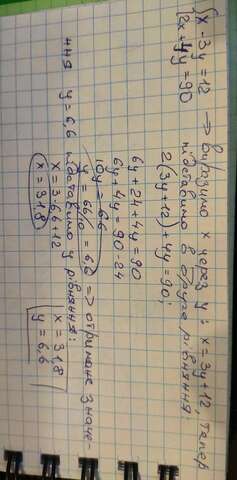 {x - 3y = 12
{2x + 4y = 90
=> виразимо x через y: x = 3y + 12, тепер
підставимо в друге рівняння:
2(3y + 12) + 4y = 90;
6y + 24 + 4y = 90
6y + 4y = 90 - 24
10y = 66
y = 66/10 = 6,6 => отримане значе-
ння y = 6,6 підставимо у рівняння:
x = 3·6,6 + 12
x = 31,8
x = 31,8
y = 6,6